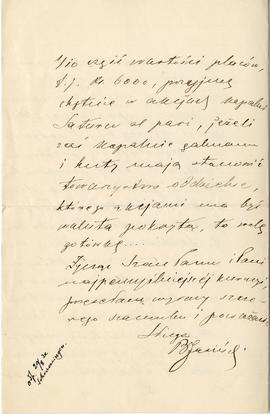 1/10 część wartości placów,
t. j. Rs 6000, przyjmę
chętnie w akcjach kopalni
Saturn al pari, jeżeli
zaś kopalnie galmanu
i huty mają stanowić
towarzystwo oddzielne,
którego akcjami ma być
waluta pokryta, to wolę
gotówkę...
Życząc Szan Panu i Pani
najpomyślniejszej kuracji,
przesyłam wyrazy szcze-
rego szacunku i poważania
Sługa